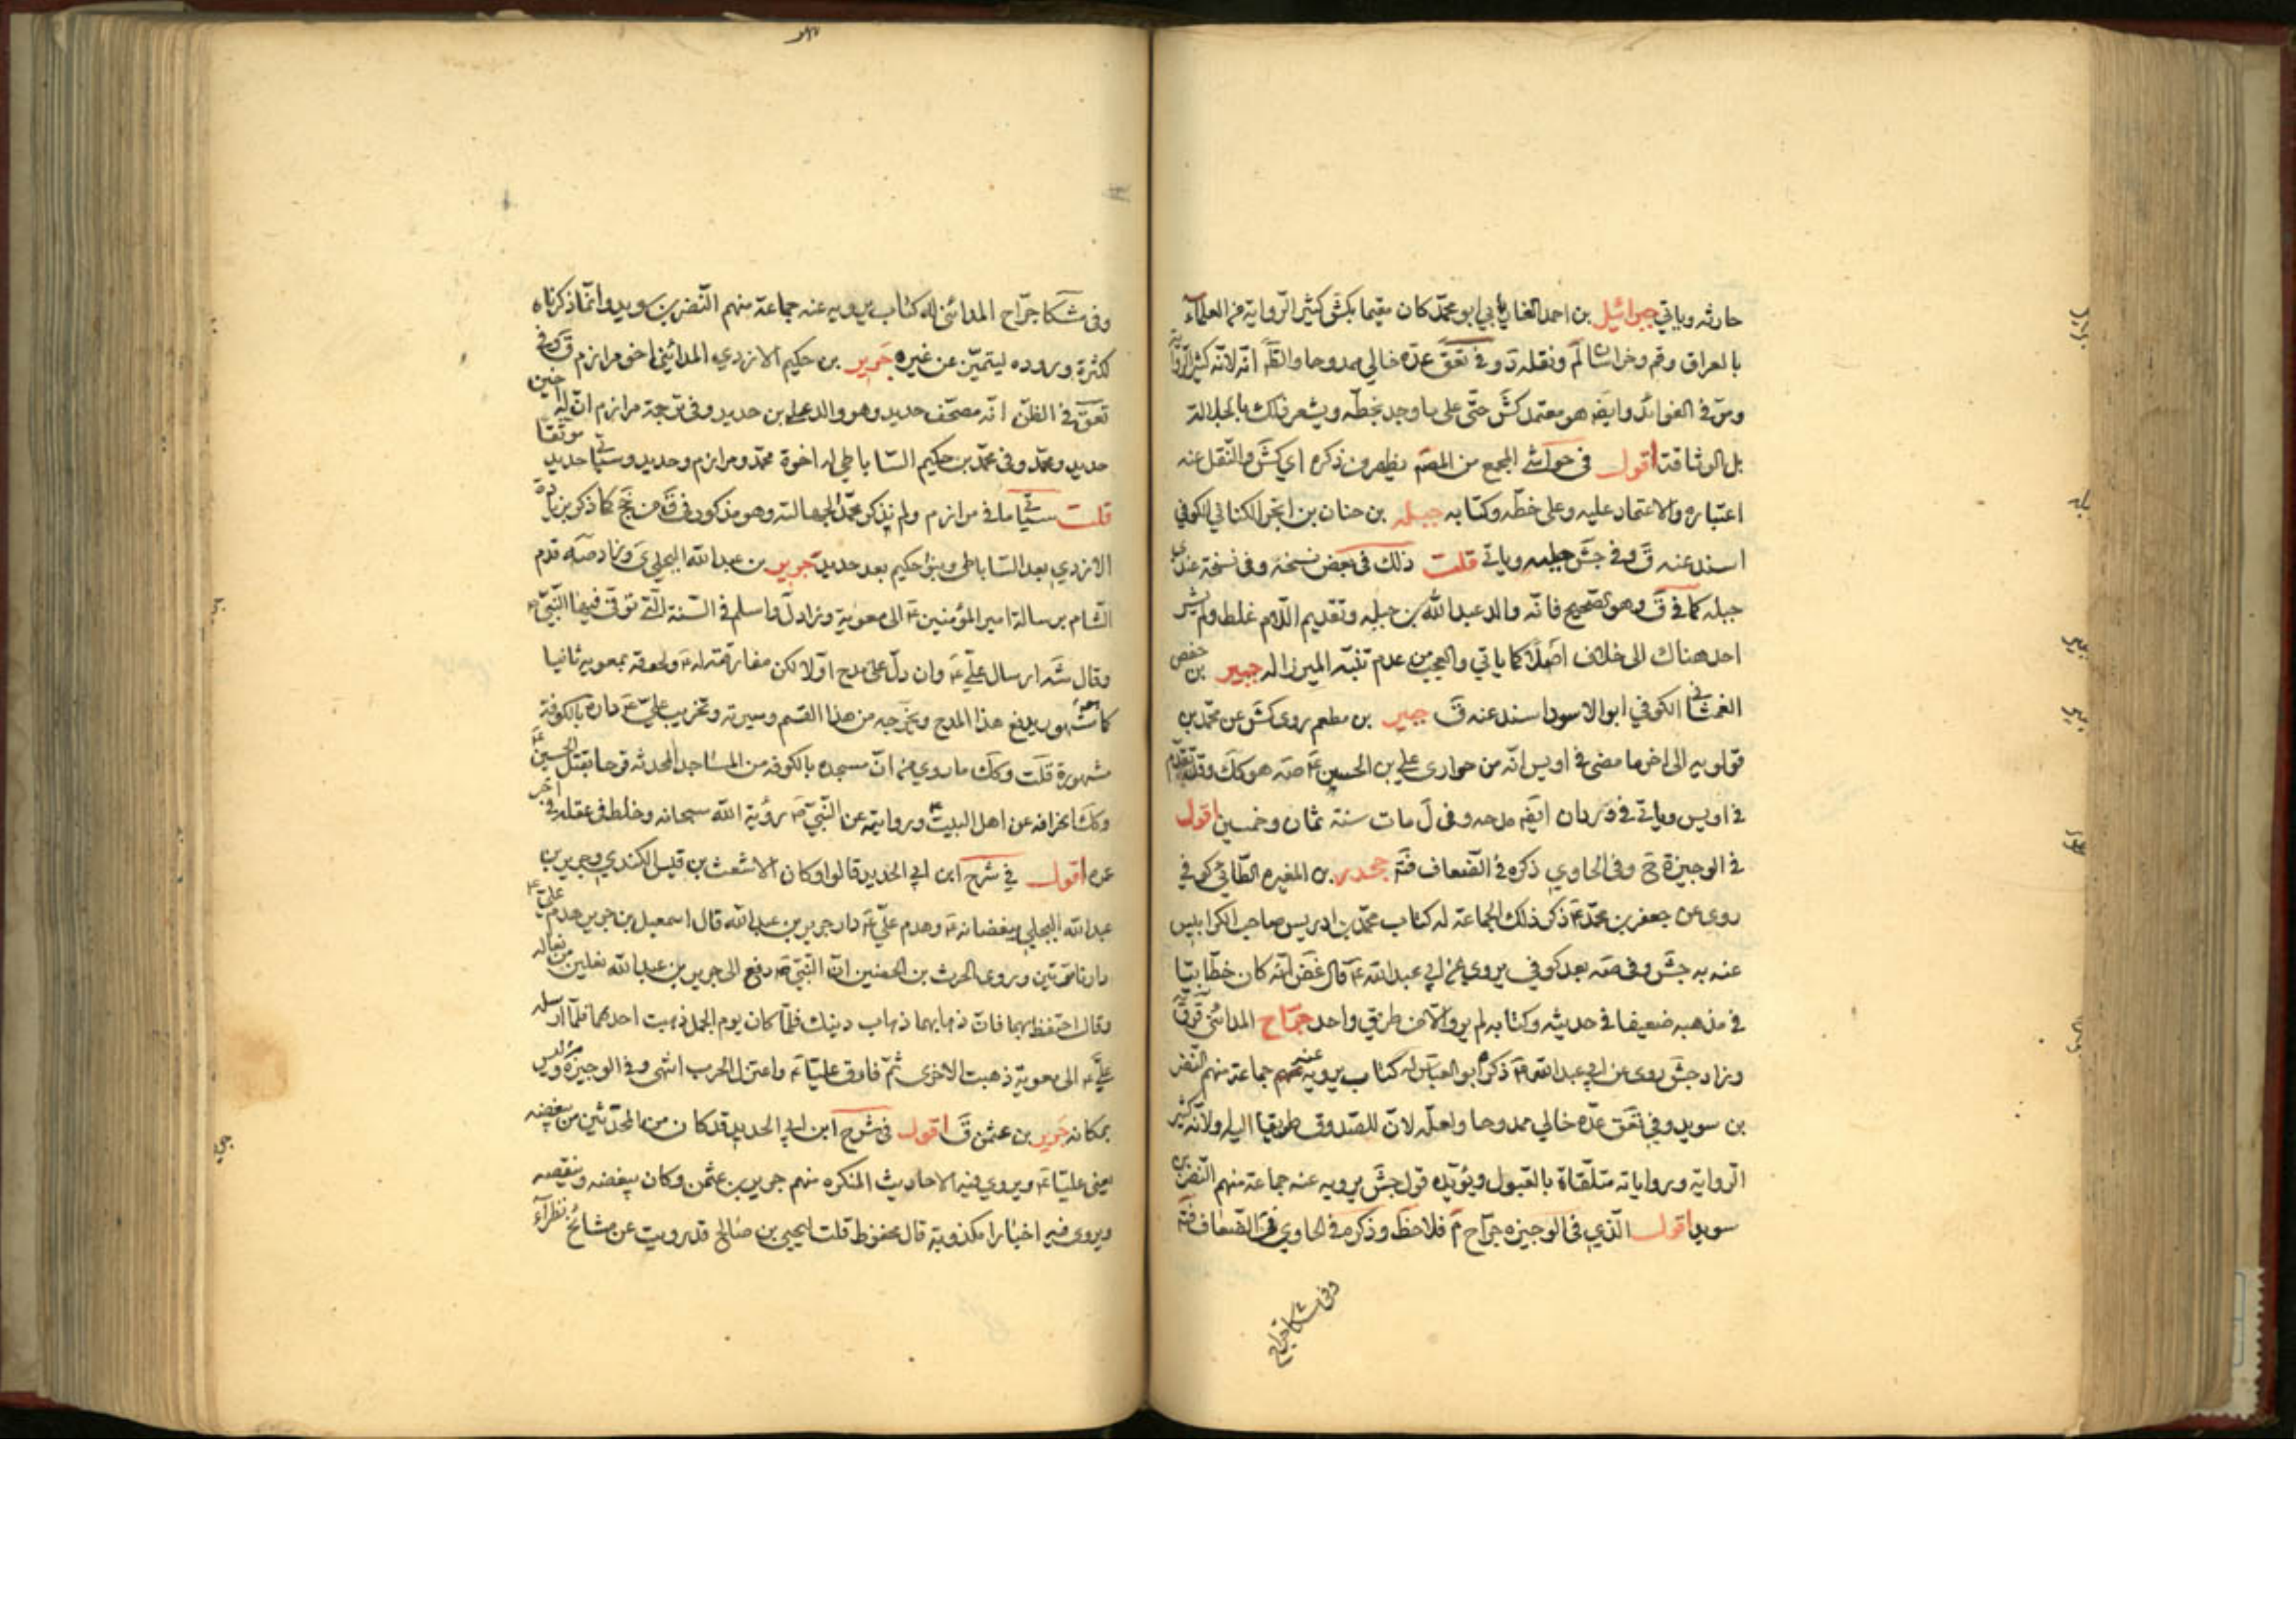 حارثه وياتي جبرائيل بن احمد الفاريابي ابو محمد كان مقيما بكش كثير الرواية من العلماء
بالعراق وقم وخراسان لم ونقله د وفي تعق عده خالي ممدوحا والظ انه لانه كثير الرواية
ومر في الفوائد وايض هو معتمد كش حتى على ما وجد بخطه ويشعر ذلك بالجلالة
بل الوثاقة اقول في حواشي المجمع من المصم يظهر من ذكره اي كش والنقل عنه
اعتباره والاعتماد عليه وعلى خطه وكتابه جبله بن حنان بن ابجر الكناني الكوفي
اسند عنه ق وفي جش حلبه وياتي قلت ذلك في بعض نسخه وفي نسخة عندي
جبله كما في ق وهو الصحيح فانه والد عبد الله بن جبله وتقديم اللام غلط ولم يشر
احد هناك الى خلاف اصلا كما ياتي والعجب من عدم تنبه الميرزا له جبير بن حفص
الغمشاني الكوفي ابو الاسود اسند عنه ق جبير بن مطعم روى كش عن محمد بن
قولويه الى اخر ما مضى في اويس انه من حواري علي بن الحسين ع صه هو كك وقد تقدم
في اويس وياتي في وردان ايض مدحه وفي ل مات سنة ثمان وخمسين اقول
في الوجيزة ح وفي الحاوي ذكره في الضعاف فت جحدر بن المغيره الطائي كوفي
روى عن جعفر بن محمد ع ذكر ذلك الجماعة له كتاب محمد بن ادريس صاحب الكرابيس
عنه به جش وفي صه بعد كوفي يروي عن ابي عبد الله ع قال غض انه كان خطابيا
في مذهبه ضعيفا في حديثه وكتابه لم يرو الا من طريق واحد جراح المدائني ق ق
وزاد جش روى عن ابي عبد الله ع ذكره ابو العباس له كتاب يرويه عنه جماعة منهم النضر
بن سويد وفي تعق عده خالي ممدوحا ولعله لان للصدوق طريقا اليه ولانه كثير
الرواية ورواياته متلقاة بالقبول ويؤيده قول جش يرويه عنه جماعة منهم النضر بن
سويد اقول الذي في الوجيزه جراح م فلاحظ وذكره في الحاوي في الضعاف فت
وفي مشكا جراح
وفي مشكا جراح المدائني له كتاب يرويه عنه جماعة منهم النضر بن سويد وانما ذكرناه
لكثرة وروده ليتميز عن غيره جرير بن حكيم الازدي المدائني اخو مرازم ق وفي
تعق في الظن انه مصحف حديد وهو والد علي بن حديد وفي ترجمة مرازم ان له اخوين
حديد ومحمد وفي محمد بن حكيم الساباطي له اخوة محمد ومرازم وحديد وسياتي حديد موثقا
قلت سياتي ما في مرازم ولم نذكر محمدا لجهالته وهو مذكور في ق من نج كما ذكر بزيادة
الازدي بعد الساباطي وبنو حكيم بعد حديد جرير بن عبد الله البجلي ي وزاد صه قدم
الشام برسالة امير المؤمنين ع الى معوية وزاد ل واسلم في السنة التي توفي فيها النبي ص
وقال شه ارسال علي ع وان دل على مدح اولا لكن مفارقته له ع ولحوقه بمعويه ثانيا
كما هو مشهور يدفع هذا المدح ويخرجه من هذا القسم وسيرته وتخريب علي ع داره بالكوفة
مشهورة قلت وكك ما روي من ان مسجده بالكوفه من المساجد المحدثه فرحا بقتل الحسين ع
وكذا انحرافه عن اهل البيت ع وروايته عن النبي ص رؤية الله سبحانه وخلط في عقله في اخر
عمره اقول في شرح ابن ابي الحديد قالوا وكان الاشعث بن قيس الكندي وجرير بن
عبد الله البجلي يبغضانه ع وهدم علي ع دار جرير بن عبد الله قال اسمعيل بن جرير هدم علي ع
دارنا مرتين وروى الحرث بن الحصين ان النبي ص دفع الى جرير بن عبد الله نعلين من نعاله
وقال احتفظ بهما فان ذهابهما ذهاب دينك فلما كان يوم الجمل ذهبت احدهما فلما ارسله
علي ع الى معوية ذهبت الاخرى ثم فارق عليا ع واعتزل الحرب انتهى وفي الوجيزة وليس
بمكانه جرير بن عثمن ق اقول في شرح ابن ابي الحديد قد كان من المحدثين من يبغضه
يعني عليا ع ويروي فيه الاحاديث المنكره منهم جرير بن عثمن وكان يبغضه وينقصه
ويروي فيه اخبارا مكذوبة قال محفوظ قلت ليحيى بن صالح قد رويت عن مشائخ نظراء